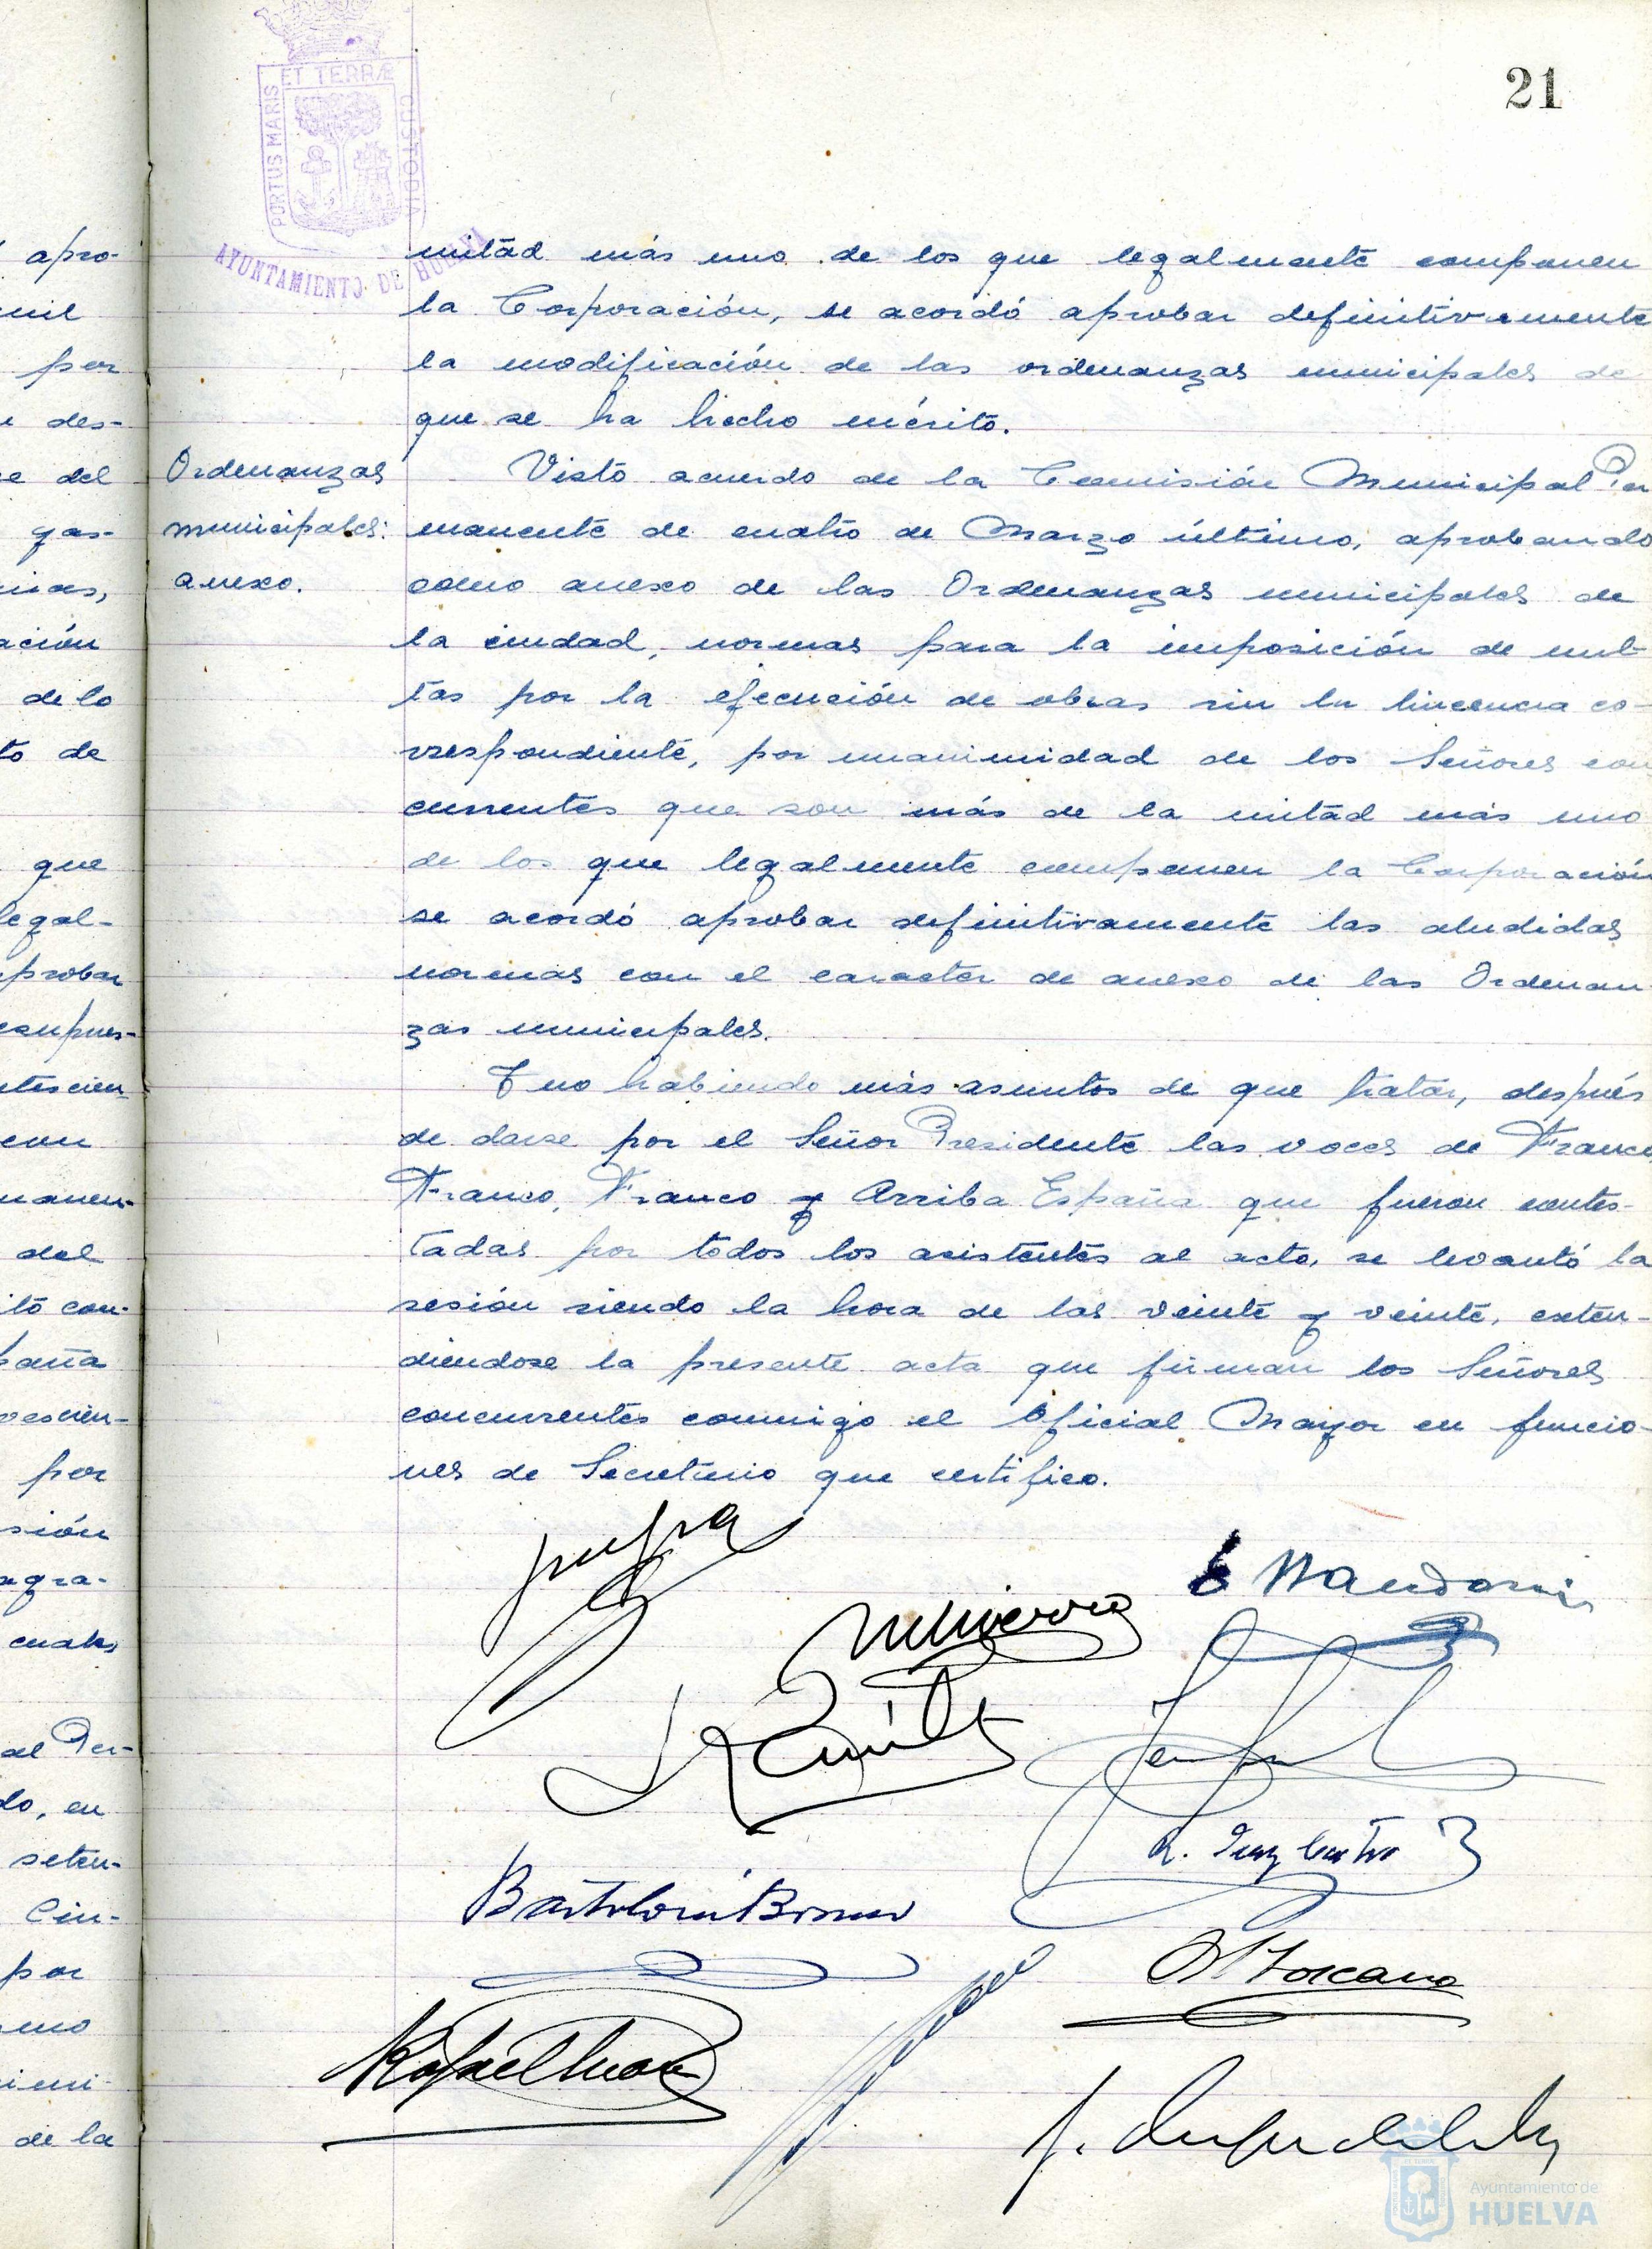 21
PORTUS MARIS
ET TERRÆ
CUSTODIA
AYUNTAMIENTO DE HUELVA
mitad más uno de los que legalmente componen
la Corporación, se acordó aprobar definitivamente
la modificación de las ordenanzas municipales de
que se ha hecho mérito.
Ordenanzas
municipales:
anexo.
Visto acuerdo de la Comisión Municipal Per
manente de cuatro de Marzo último, aprobando
como anexo de las Ordenanzas municipales de
la ciudad, normas para la imposición de mul-
tas por la ejecución de obras sin la lincencia co-
rrespondiente, por unanimidad de los Señores con
currentes que son más de la mitad más uno
de los que legalmente componen la Corporación
se acordó aprobar definitivamente las aludidas
normas con el caracter de anexo de las Ordenan
zas municipales.
Y no habiendo más asuntos de que tratar, después
de darse por el Señor Presidente las voces de Franco
Franco, Franco y Arriba España que fueron contes-
tadas por todos los asistentes al acto, se levantó la
sesión siendo la hora de las veinte y veinte, exten-
diendose la presente acta que firman los Señores
concurrentes conmigo el Oficial Mayor en funcio-
nes de Secretario que certifico.
R. Castro
Toscano
Rafael
apro-
mil
por
des-
del
gas-
ación
de lo
to de
que
legal-
probar
con
del
paña
por
sión
agra-
al Per-
do, en
seten-
Cin-
por
uno
de la
Ayuntamiento de
HUELVA